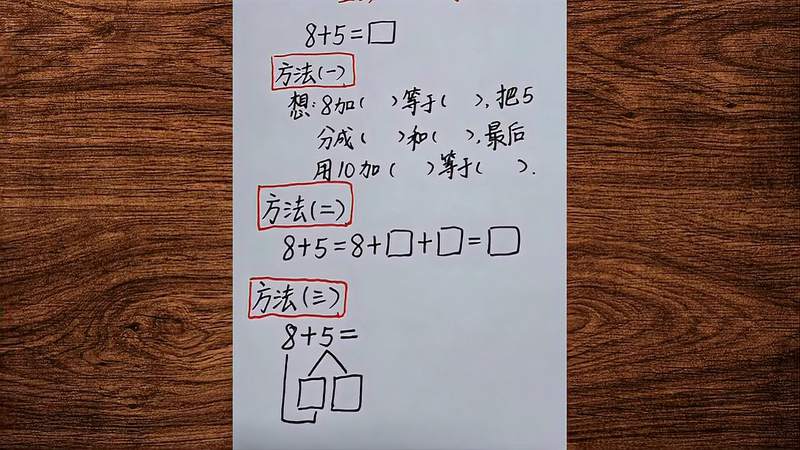 8+5=□
方法(一)
想:8加( )等于( ),把5
分成( )和( ),最后
用10加( )等于( ).
方法(二)
8+5=8+□+□=□
方法(三)
8+5=
□□